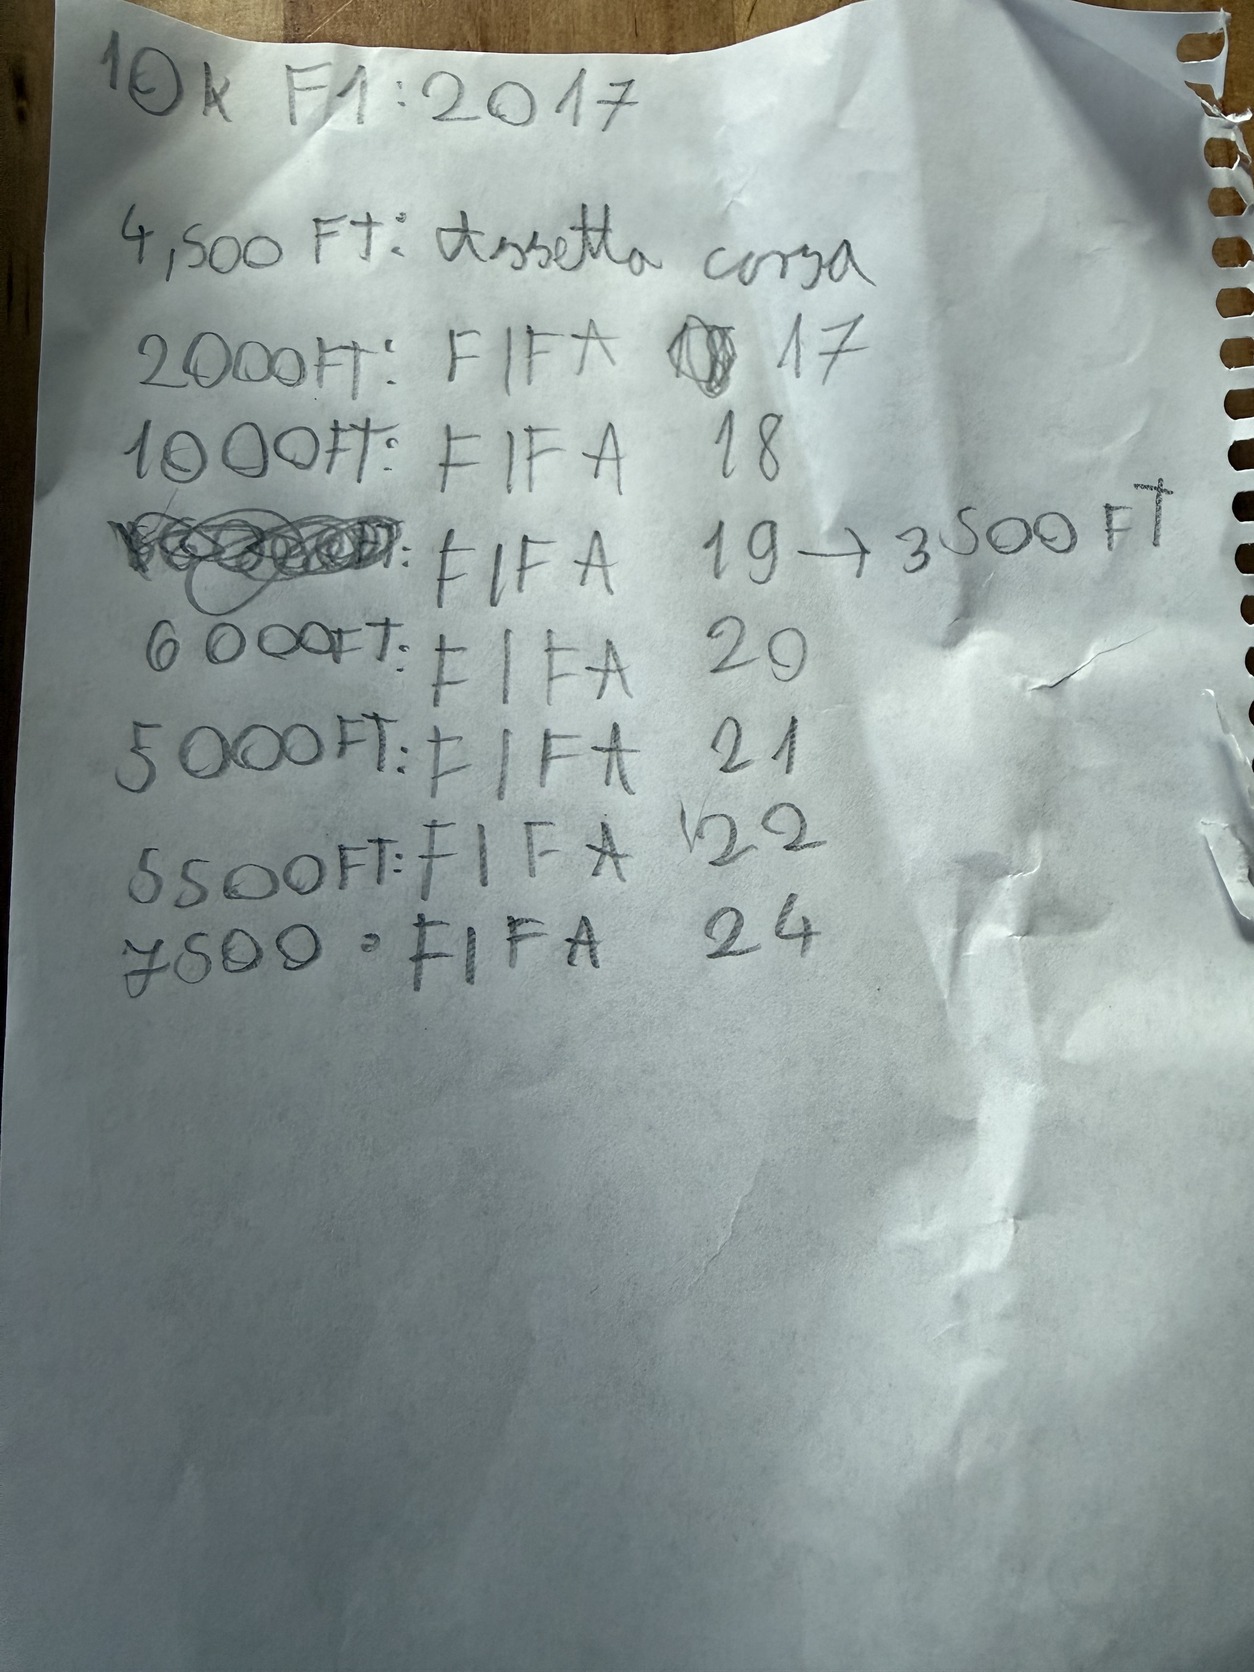 10k F1:2017
4,500 FT: Assetta corsa
2000FT: FIFA 17
1000FT: FIFA 18
: FIFA 19 → 3500 FT
6000FT: FIFA 20
5000FT: FIFA 21
5500FT: FIFA 22
7500 • FIFA 24